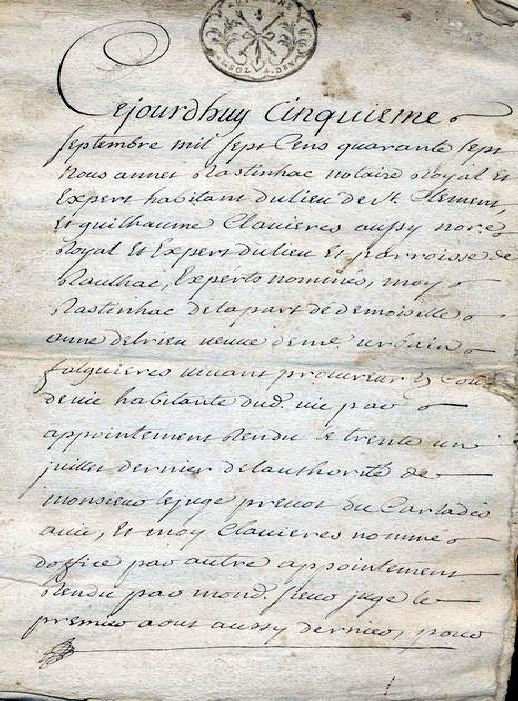 SOL A. DEN
Cejourdhuy Cinquieme
septembre mil sept Cens quarante sept
Nous annet Rastinhac notaire Royal et
Expert habitant du lieu de St. Clement,
Et guilhaume Clavieres aussy nore.
Royal Et Expert du lieu Et parroisse de
Raulhac, Experts nommés, moy
Rastinhac de la part de demoiselle
anne delrieu veuve de me. urbain
falguieres vivant procureur Ez Cour
de vic habitante dud. vic par
appointement Rendu le trente un
juillet dernier de lauthorité de
monsieur le juge prevot du Carladés
a vic, Et moy Clavieres nomme
doffice par autre appointement
Rendu par mond. sieur juge le
premier aout aussy dernier, pour